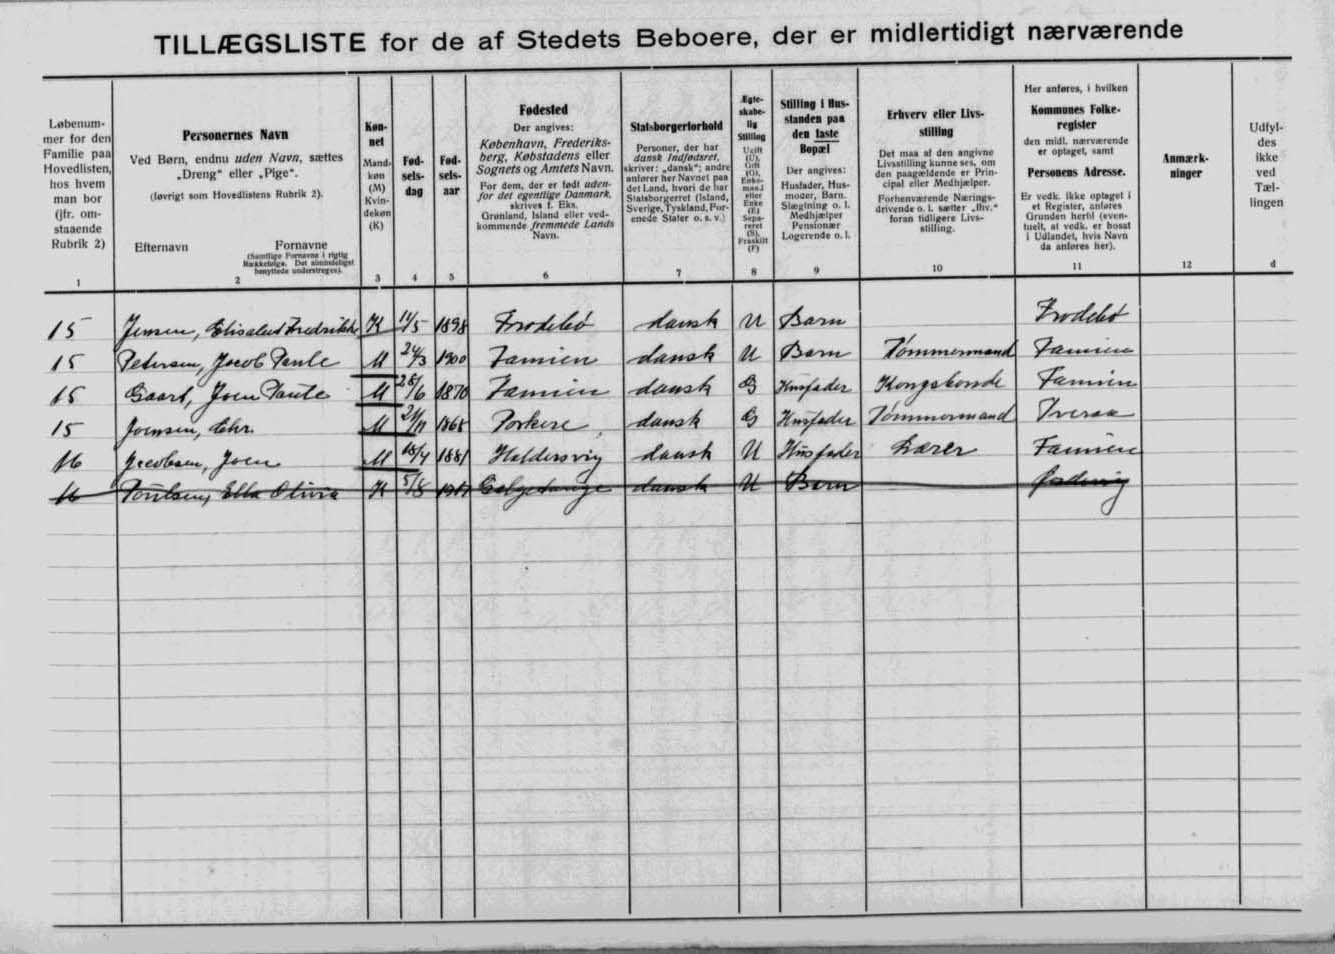 TILLÆGSLISTE for de af Stedets Beboere, der er midlertidigt nærværende
Løbenum-
mer for den
Familie paa
Hovedlisten,
hos hvem
man bor
(jfr. om-
staaende
Rubrik 2)
1
Personernes Navn
Ved Børn, endnu uden Navn, sættes
„Dreng“ eller „Pige“.
(Iøvrigt som Hovedlistens Rubrik 2).
Efternavn Fornavne
(Samtlige Fornavne i rigtig
Rækkefølge. Det almindeligst
benyttede understreges).
2
Køn-
net
Mand-
køn
(M)
Kvin-
dekøn
(K)
3
Fød-
sels-
dag
4
Fød-
sels-
aar
5
Fødested
Der angives:
København, Frederiks-
berg, Købstadens eller
Sognets og Amtets Navn.
For dem, der er født uden-
for det egentlige Danmark,
skrives f. Eks.
Grønland, Island eller ved-
kommende fremmede Lands
Navn.
6
Statsborgerforhold
Personer, der har
dansk Indfødsret,
skriver: „dansk“; andre
anfører her Navnet paa
det Land, hvori de har
Statsborgerret (Island,
Sverige, Tyskland, For-
enede Stater o. s. v.)
7
Ægte-
skabe-
lig
Stilling
Ugift
(U),
Gift
(G),
Enke-
mand
eller
Enke
(E)
Sepa-
reret
(S),
Fraskilt
(F)
8
Stilling i Hus-
standen paa
den faste
Bopæl
Der angives:
Husfader, Hus-
moder, Barn,
Slægtning o. l.
Medhjælper
Pensionær
Logerende o. l.
9
Erhverv eller Livs-
stilling
Det maa af den angivne
Livsstilling kunne ses, om
den paagældende er Prin-
cipal eller Medhjælper.
Forhenværende Nærings-
drivende o. l. sætter „fhv.“
foran tidligere Livs-
stilling.
10
Her anføres, i hvilken
Kommunes Folke-
register
den midl. nærværende
er optaget, samt
Personens Adresse.
Er vedk. ikke optaget i
et Register, anføres
Grunden hertil (even-
tuelt, at vedk. er bosat
i Udlandet, hvis Navn
da anføres her).
11
Anmærk-
ninger
12
Udfyl-
des
ikke
ved
Tæl-
lingen
d
15 Jensen, Elisabeth Fredrikke K 11/5 1898 Frodebø dansk U Barn Frodebø
15 Petersen, Jacob Paule M 24/3 1900 Famien dansk U Barn Tømmermand Famien
15 Gaard, Joen Paule M 28/6 1870 Famien dansk G Husfader Kongsbonde Famien
15 Joensen, Chr. M 21/11 1868 Porkere dansk G Husfader Tømmermand Tveraa
16 Jacobsen, Joen M 18/4 1881 Haldersvig dansk U Husfader Lærer Famien
16 Poulsen, Ella Olivia K 5/8 dansk U Barn